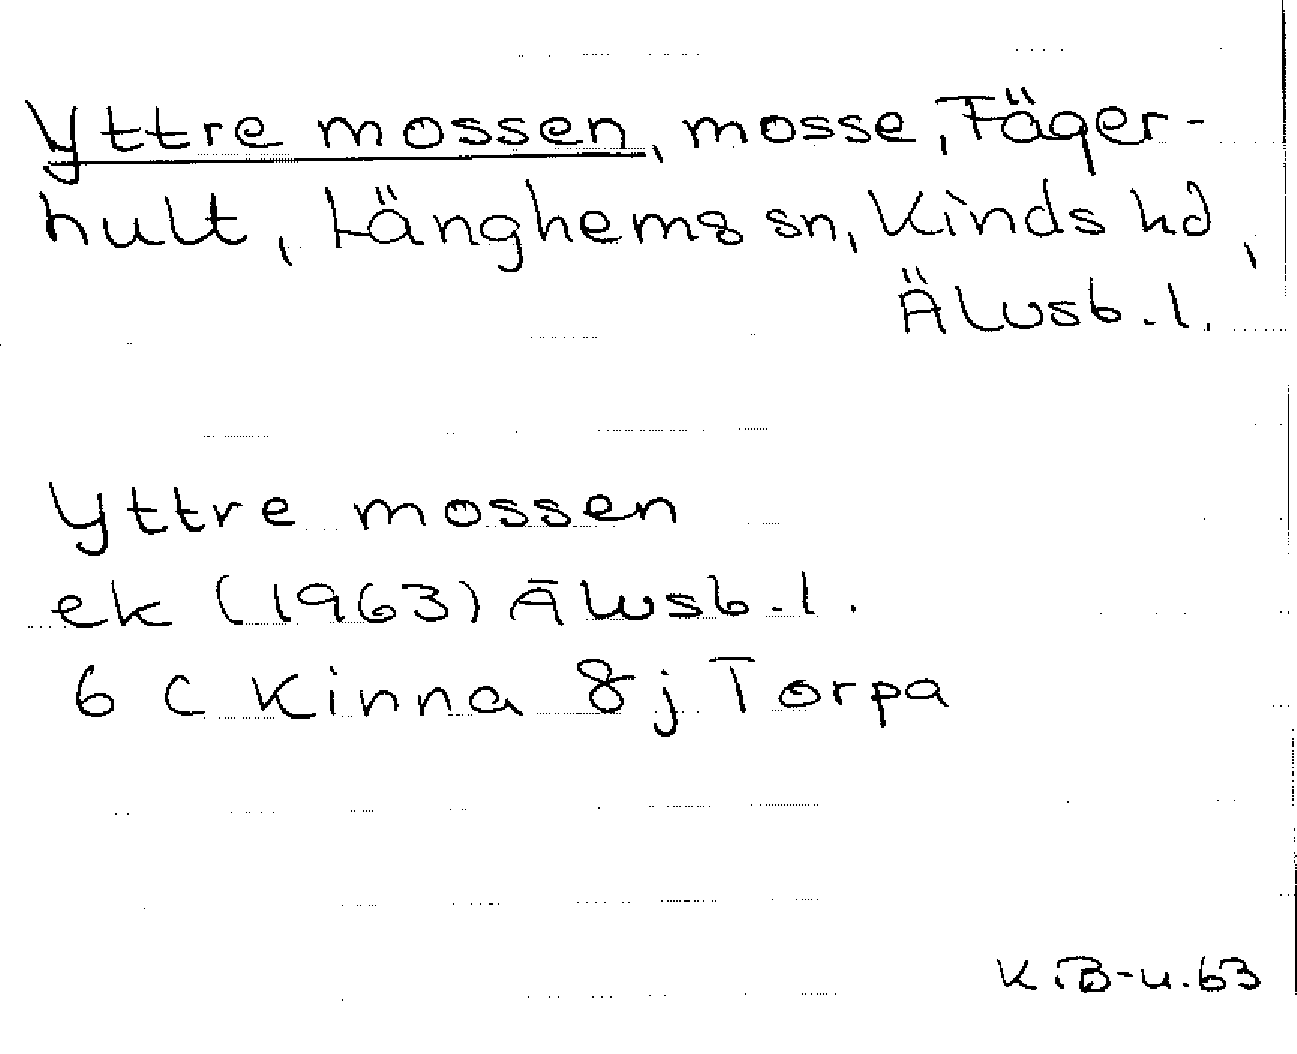 Yttre mossen, mosse, Fäger-
hult, Länghems sn, Kinds hd,
Älvsb. l.
Yttre mossen
ek (1963) Älvsb. l.
6 C Kinna 8j Torpa
K.B-u.63